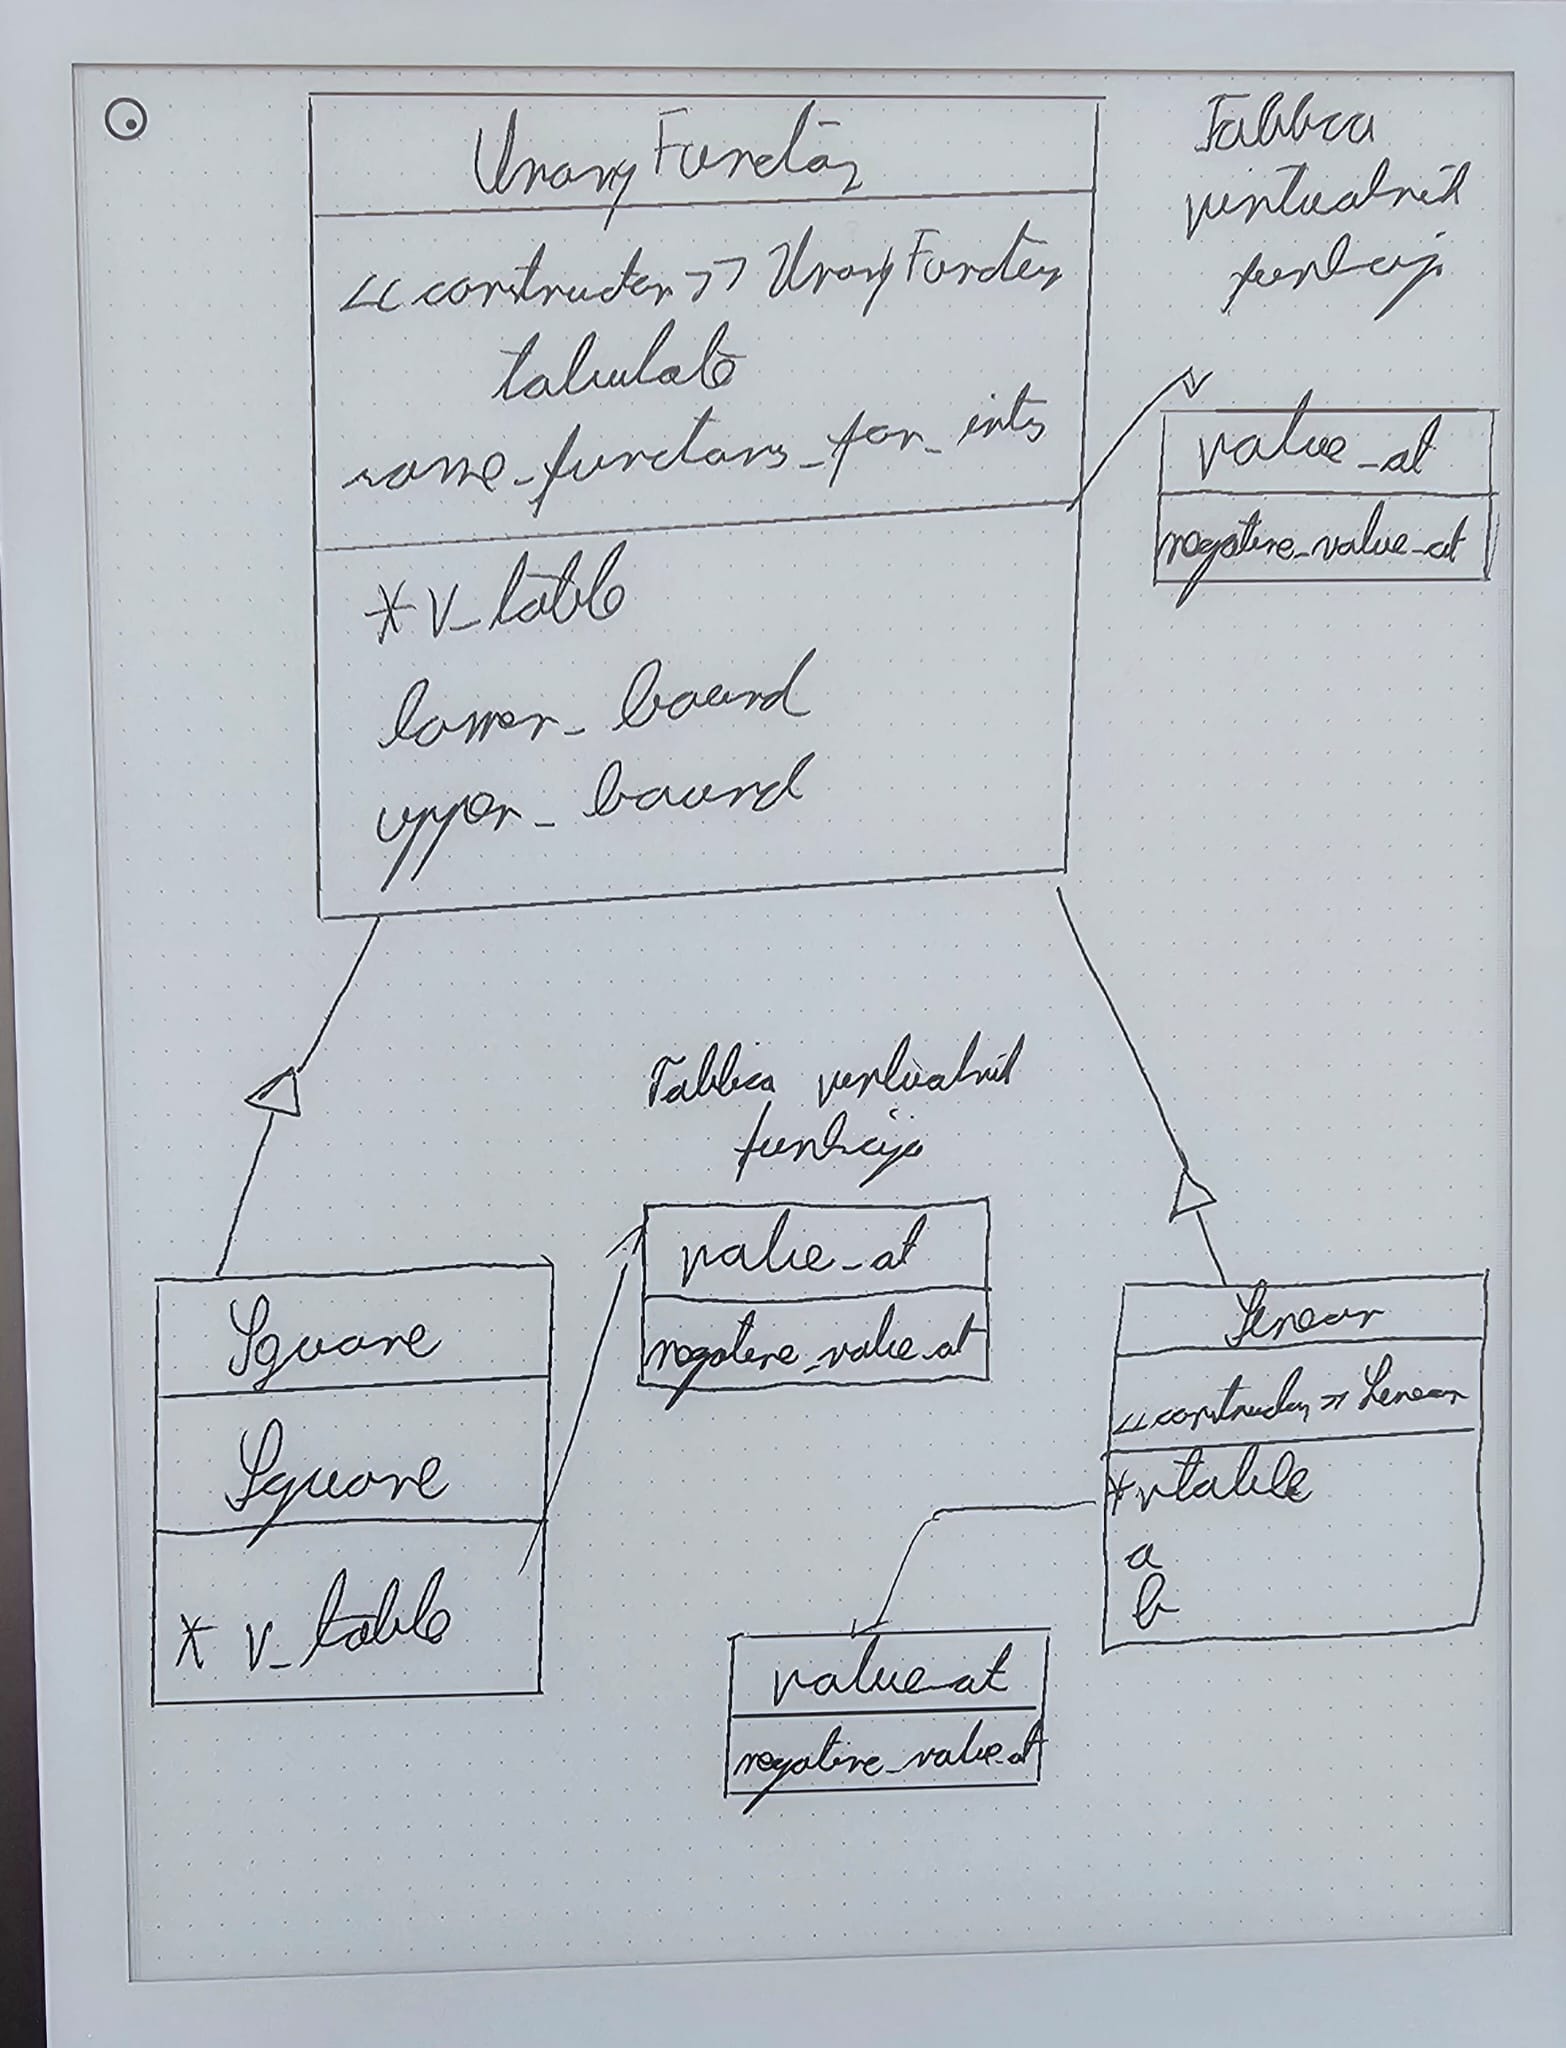 Unary Function
<<constructor>> Unary Function
tabulate
same_functions_for_ints
*v_table
lower_bound
upper_bound
Tablica
virtualnih
funkcija
value_at
negative_value_at
Tablica virtualnih
funkcija
value_at
negative_value_at
Square
Square
* v_table
Linear
<<constructor>> Linear
*vtable
a
b
value_at
negative_value_at